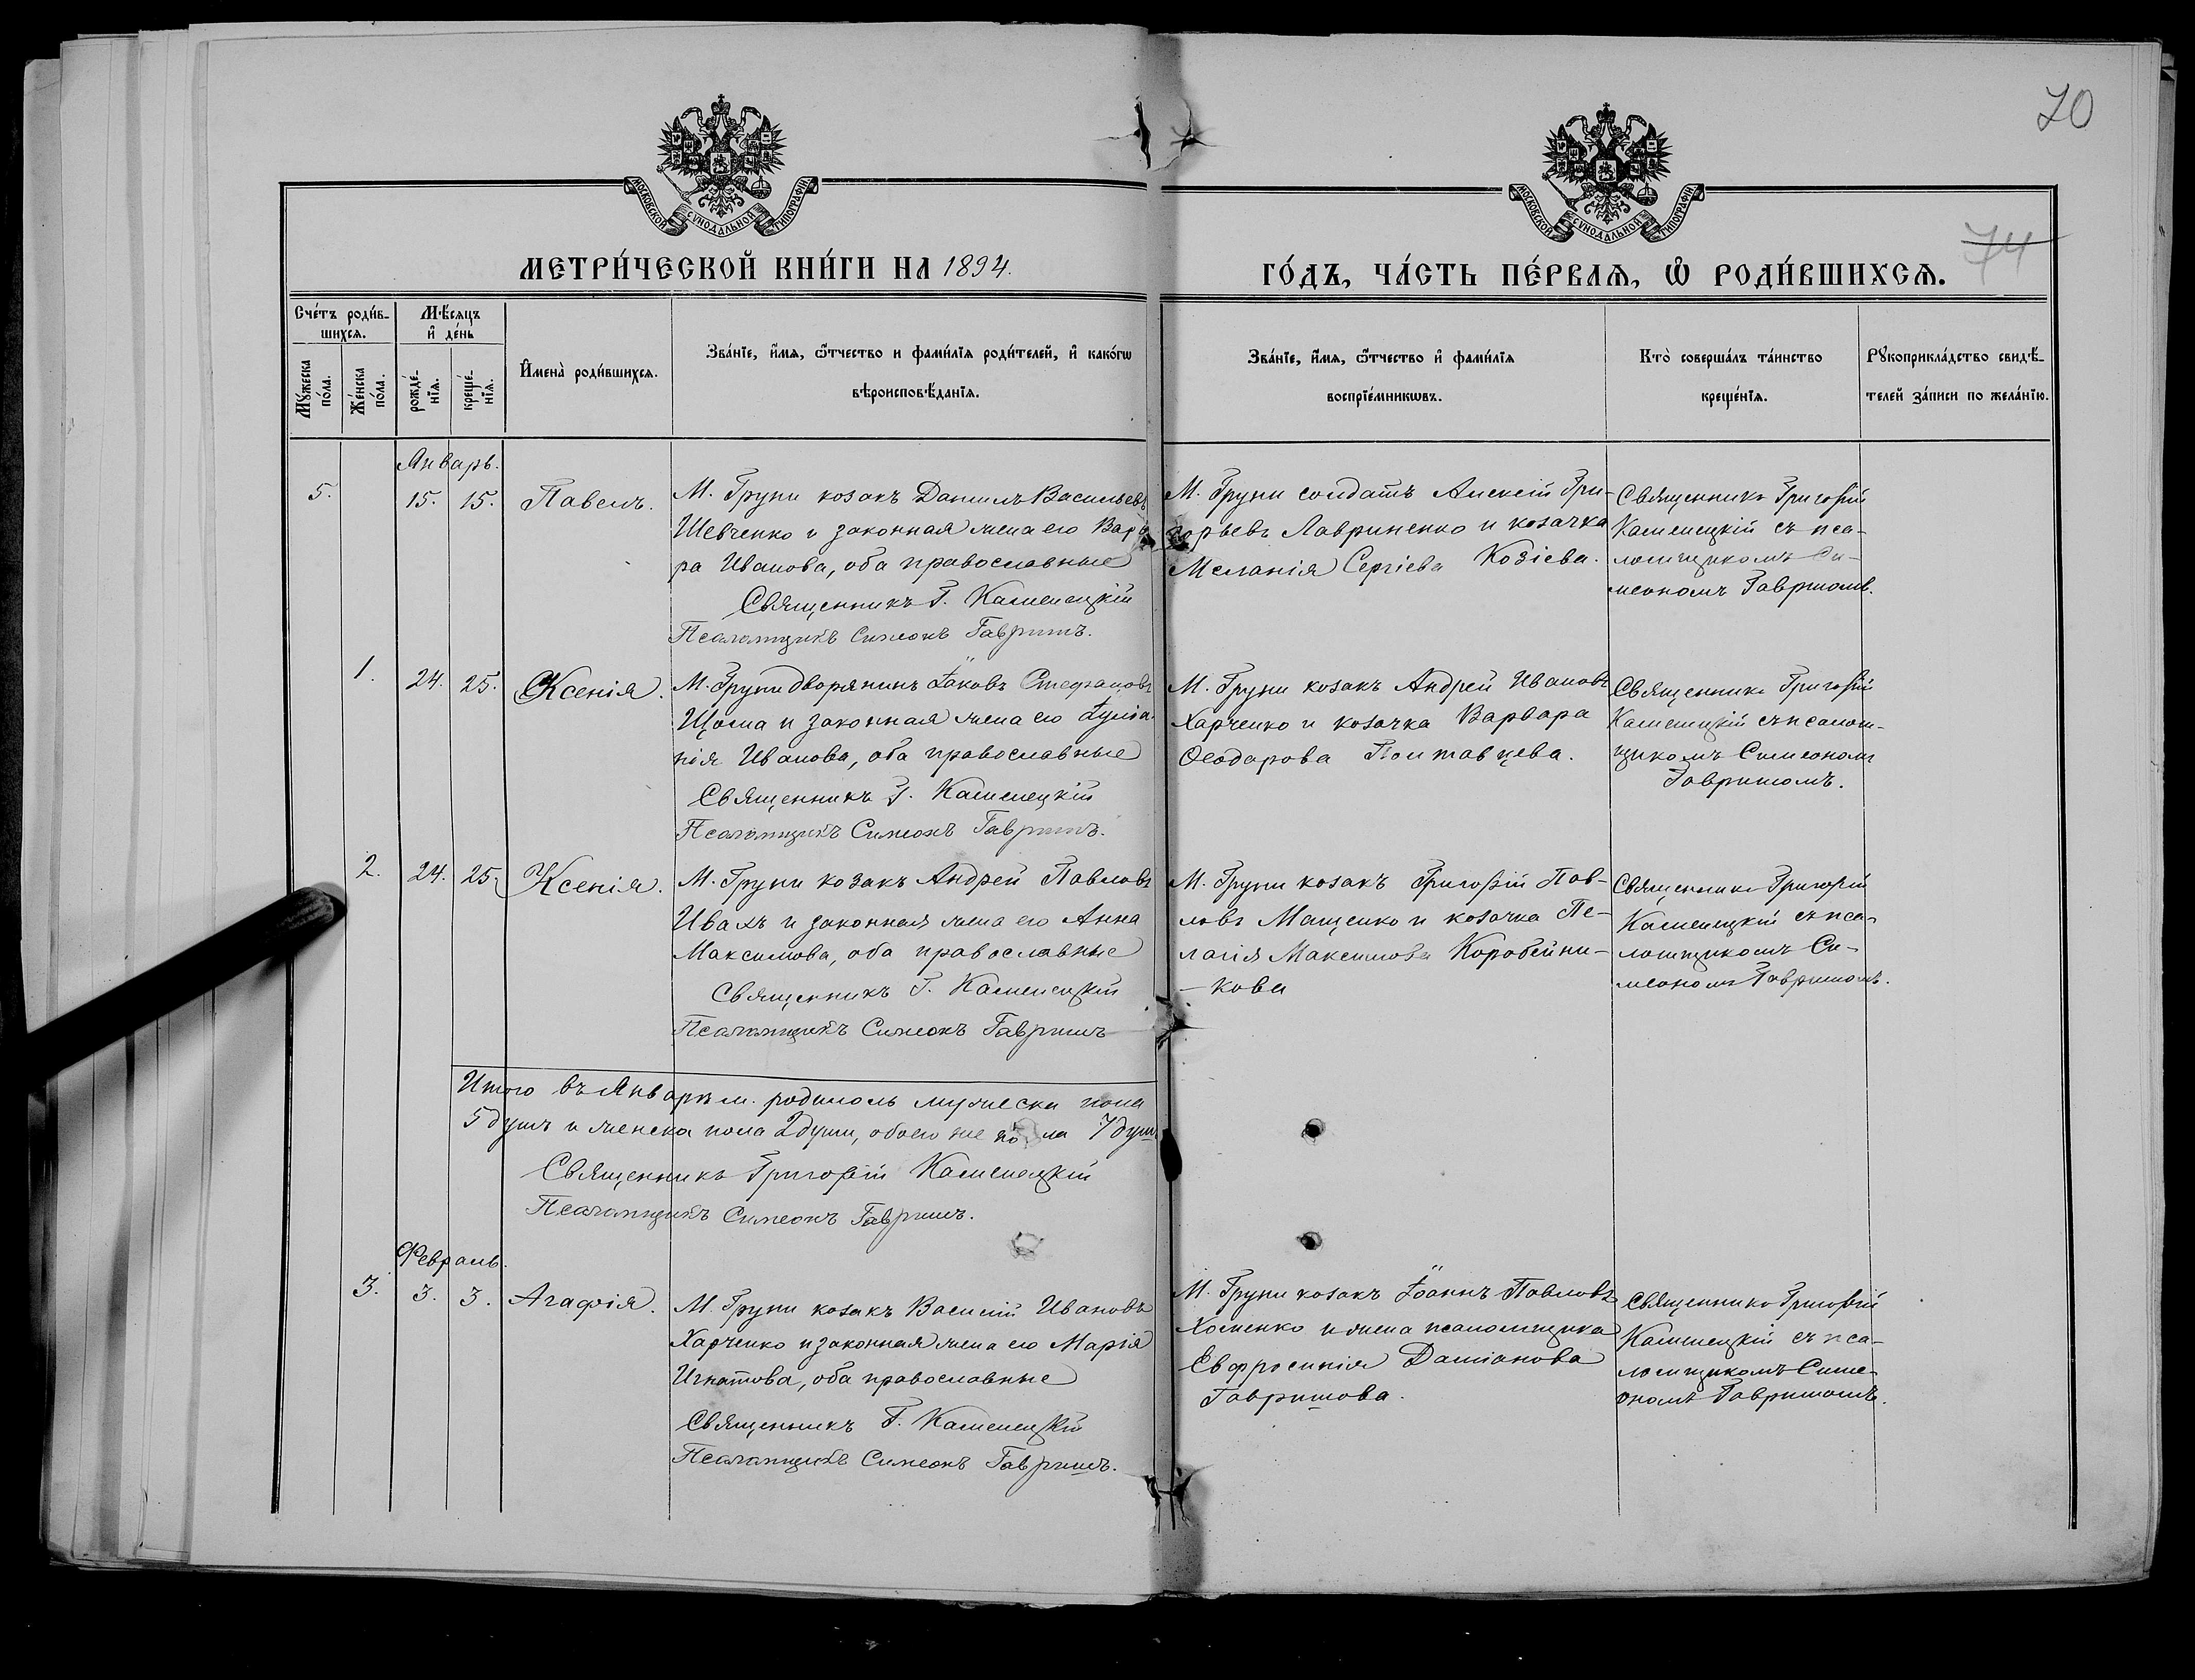 70
МОСКОВСКОЙ СѴНОДАЛЬНОЙ ТИПОГРАФІИ
МОСКОВСКОЙ СѴНОДАЛЬНОЙ ТИПОГРАФІИ
74
МЕТРИ́ЧЕСКОЙ КНИ́ГИ НА 1894.
ГО́ДЪ, ЧА́СТЬ ПЕ́РВАѦ, Ѡ҆ РОДИ́ВШИХСѦ.
Сче́тъ роди́в-
шихсѧ.
Мꙋ́жеска
по́ла.
Же́нска
по́ла.
Мѣ́сѧцъ
и҆ де́нь
рожде́-
нїѧ.
креще́-
нїѧ.
И҆мена̀ роди́вшихсѧ.
Зва́нїе, и҆́мѧ, ѻ҆́тчество и фами́лїѧ роди́телей, и҆ како́гѡ
вѣроисповѣ́данїѧ.
Зва́нїе, и҆́мѧ, ѻ҆́тчество и҆ фами́лїѧ
воспрїе́мникѡвъ.
Кто̀ соверша́лъ та́инство
креще́нїѧ.
Рꙋкоприкла́дство свидѣ́-
телей за́писи по жела́нїю.
Январь.
5.
15. 15.
Павелъ.
М. Груни козакъ Данилъ Васильевъ
Шевченко и законная жена его Варва
ра Иванова, оба православные
Священникъ Г. Каменецкій
Псаломщикъ Симеонъ Гавришъ.
М. Груни солдатъ Алексій Гри-
горьевъ Лавриненко и козачка
Меланія Сергіева Козіева.
Священникъ Григорій
Каменецкій съ пса-
ломщикомъ Си-
меономъ Гавришомъ.
1.
24. 25.
Ксенія.
М. Груни дворянинъ Іаковъ Стефановъ
Щома и законная жена его Іуліа
нія Иванова, оба православные
Священникъ Г. Каменецкій
Псаломщикъ Симеонъ Гавришъ.
М. Груни козакъ Андрей Ивановъ
Харченко и козачка Варвара
Ѳеодорова Полтавцева.
Священникъ Григорій
Каменецкій съ псалом-
щикомъ Симеономъ
Гавришомъ.
2.
24. 25.
Ксенія.
М. Груни козакъ Андрей Павловъ
Ивахъ и законная жена его Анна
Максимова, оба православные
Священникъ Г. Каменецкій
Псаломщикъ Симеонъ Гавришъ
М. Груни козакъ Григорій Пав-
ловъ Мащенко и козачка Пе-
лагія Максимова Коробейни-
-кова
Священникъ Григорій
Каменецкій съ пса-
ломщикомъ Си-
меономъ Гавришомъ.
Итого въ Январѣ м. родилось мужеска пола
5 душъ и женска пола 2 души, обоего же пола 7 душъ
Священникъ Григорій Каменецкій
Псаломщикъ Симеонъ Гавришъ.
Февраль.
3.
3. 3.
Агафія.
М. Груни козакъ Василій Ивановъ
Харченко и законная жена его Марія
Игнатова, оба православные
Священникъ Г. Каменецкій
Псаломщикъ Симеонъ Гавришъ.
М. Груни козакъ Іоаннъ Павловъ
Хоменко и жена псаломщика
Евфросинія Даміанова
Гавришова.
Священникъ Григорій
Каменецкій съ пса-
ломщикомъ Симе-
ономъ Гавришомъ.